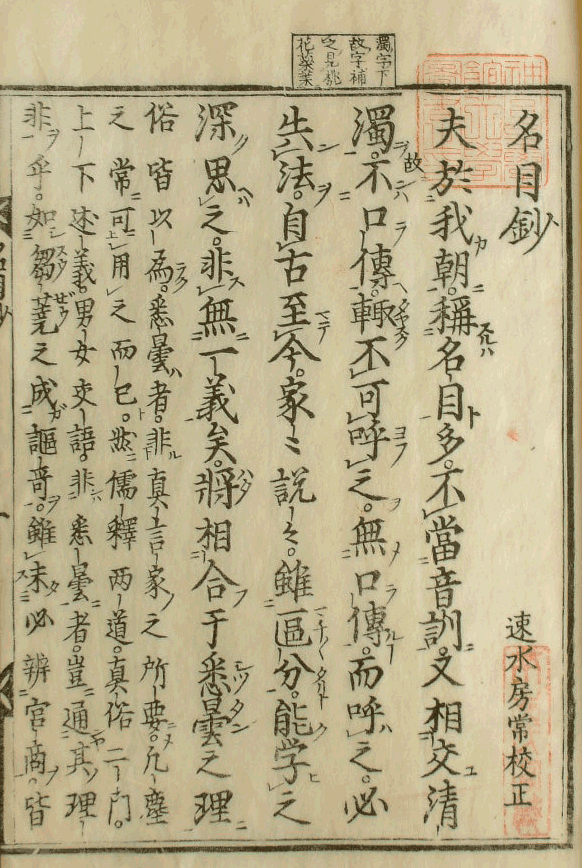 濁字下
故字補
之見桃
花蘂葉
名目鈔
速水房常校正
夫於我朝。稱名目多。不當音訓。又相交清
濁。故不口傳。輙不可呼之。無口傳。而呼之。必
失法。自古至今。家〻說〻。雖區分。能学之
深思之。非無一義矣。將相合于悉曇之理
俗皆以為。悉曇者。非真言家之所要。凡塵
之常可用之而已。儒釋两道。真俗二門。
上下述義。男女交語。非悉曇者。豈通其理
非乎。如蒭蕘之成謳哥。雖未必辨宮商。皆